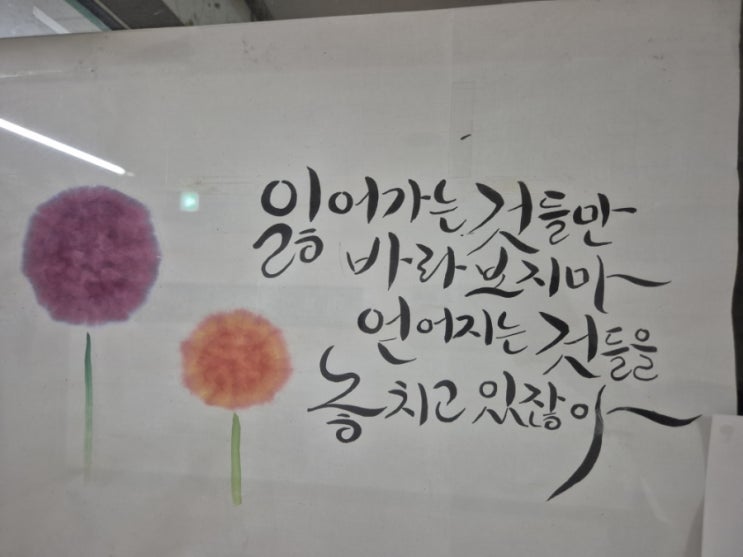 잃어가는 것들만
바라 보지마~
얻어지는 것들을
놓치고 있잖아~